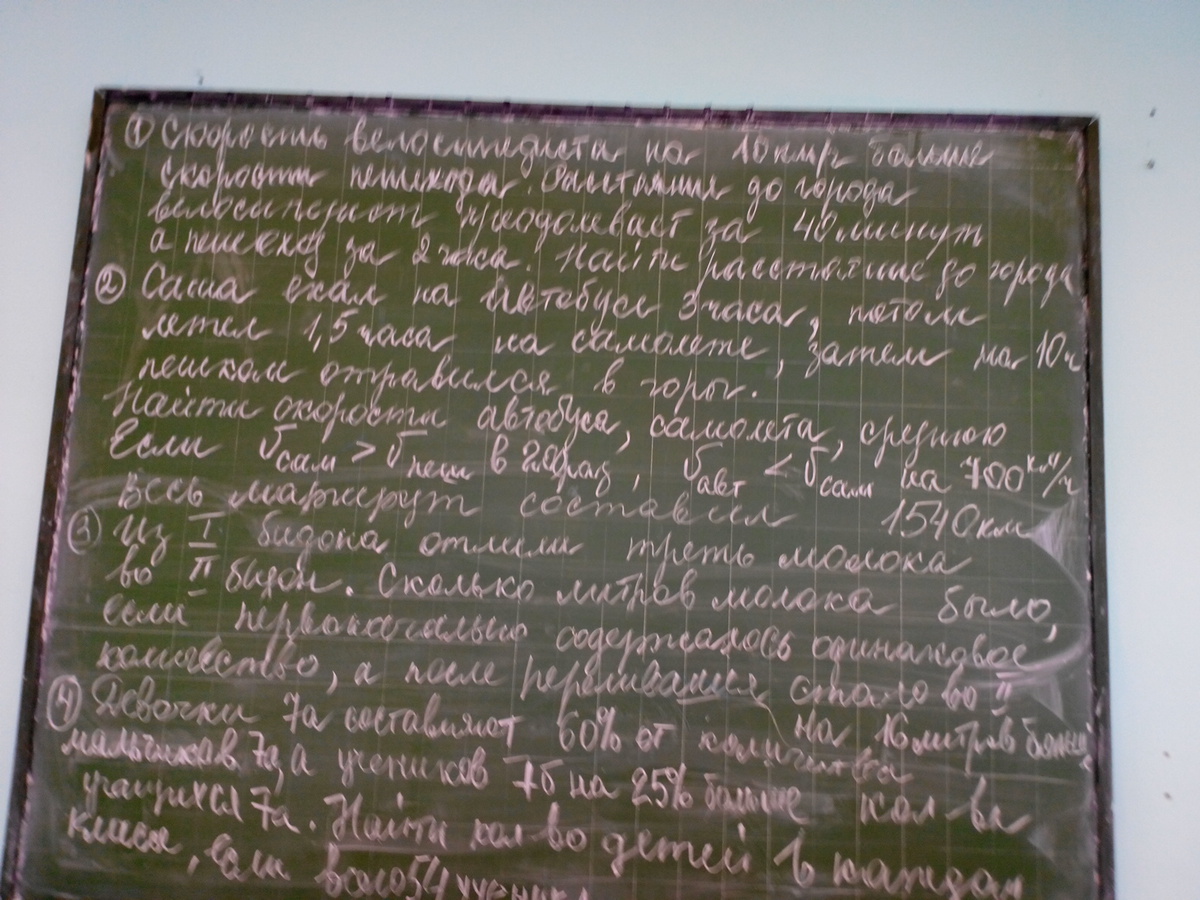 ① Скорость велосипедиста на 10 км/ч больше
скорости пешехода. Расстояние до города
велосипедист преодолевает за 40 минут
а пешеход за 2 часа. Найти расстояние до города
② Саша ехал на автобусе 3 часа, потом
летел 1,5 часа на самолете, затем на 10ч
пешком отправился в горы.
Найти скорости автобуса, самолета, среднюю
Если Vсам > Vпеш в раз, Vавт < Vсам на 700 км/ч
весь маршрут составил 1540 км
③ Из I бидона отлили треть молока
во II бидон. Сколько литров молока было,
если первоначально содержалось одинаковое
количество, а после переливания стало во II
на 16 литров больше
④ Девочки 7а составляют 60% от количества
мальчиков 7а, а учеников 7б на 25% больше кол ва
учащихся 7а. Найти кол во детей в каждом
классе, если всего 54 ученика